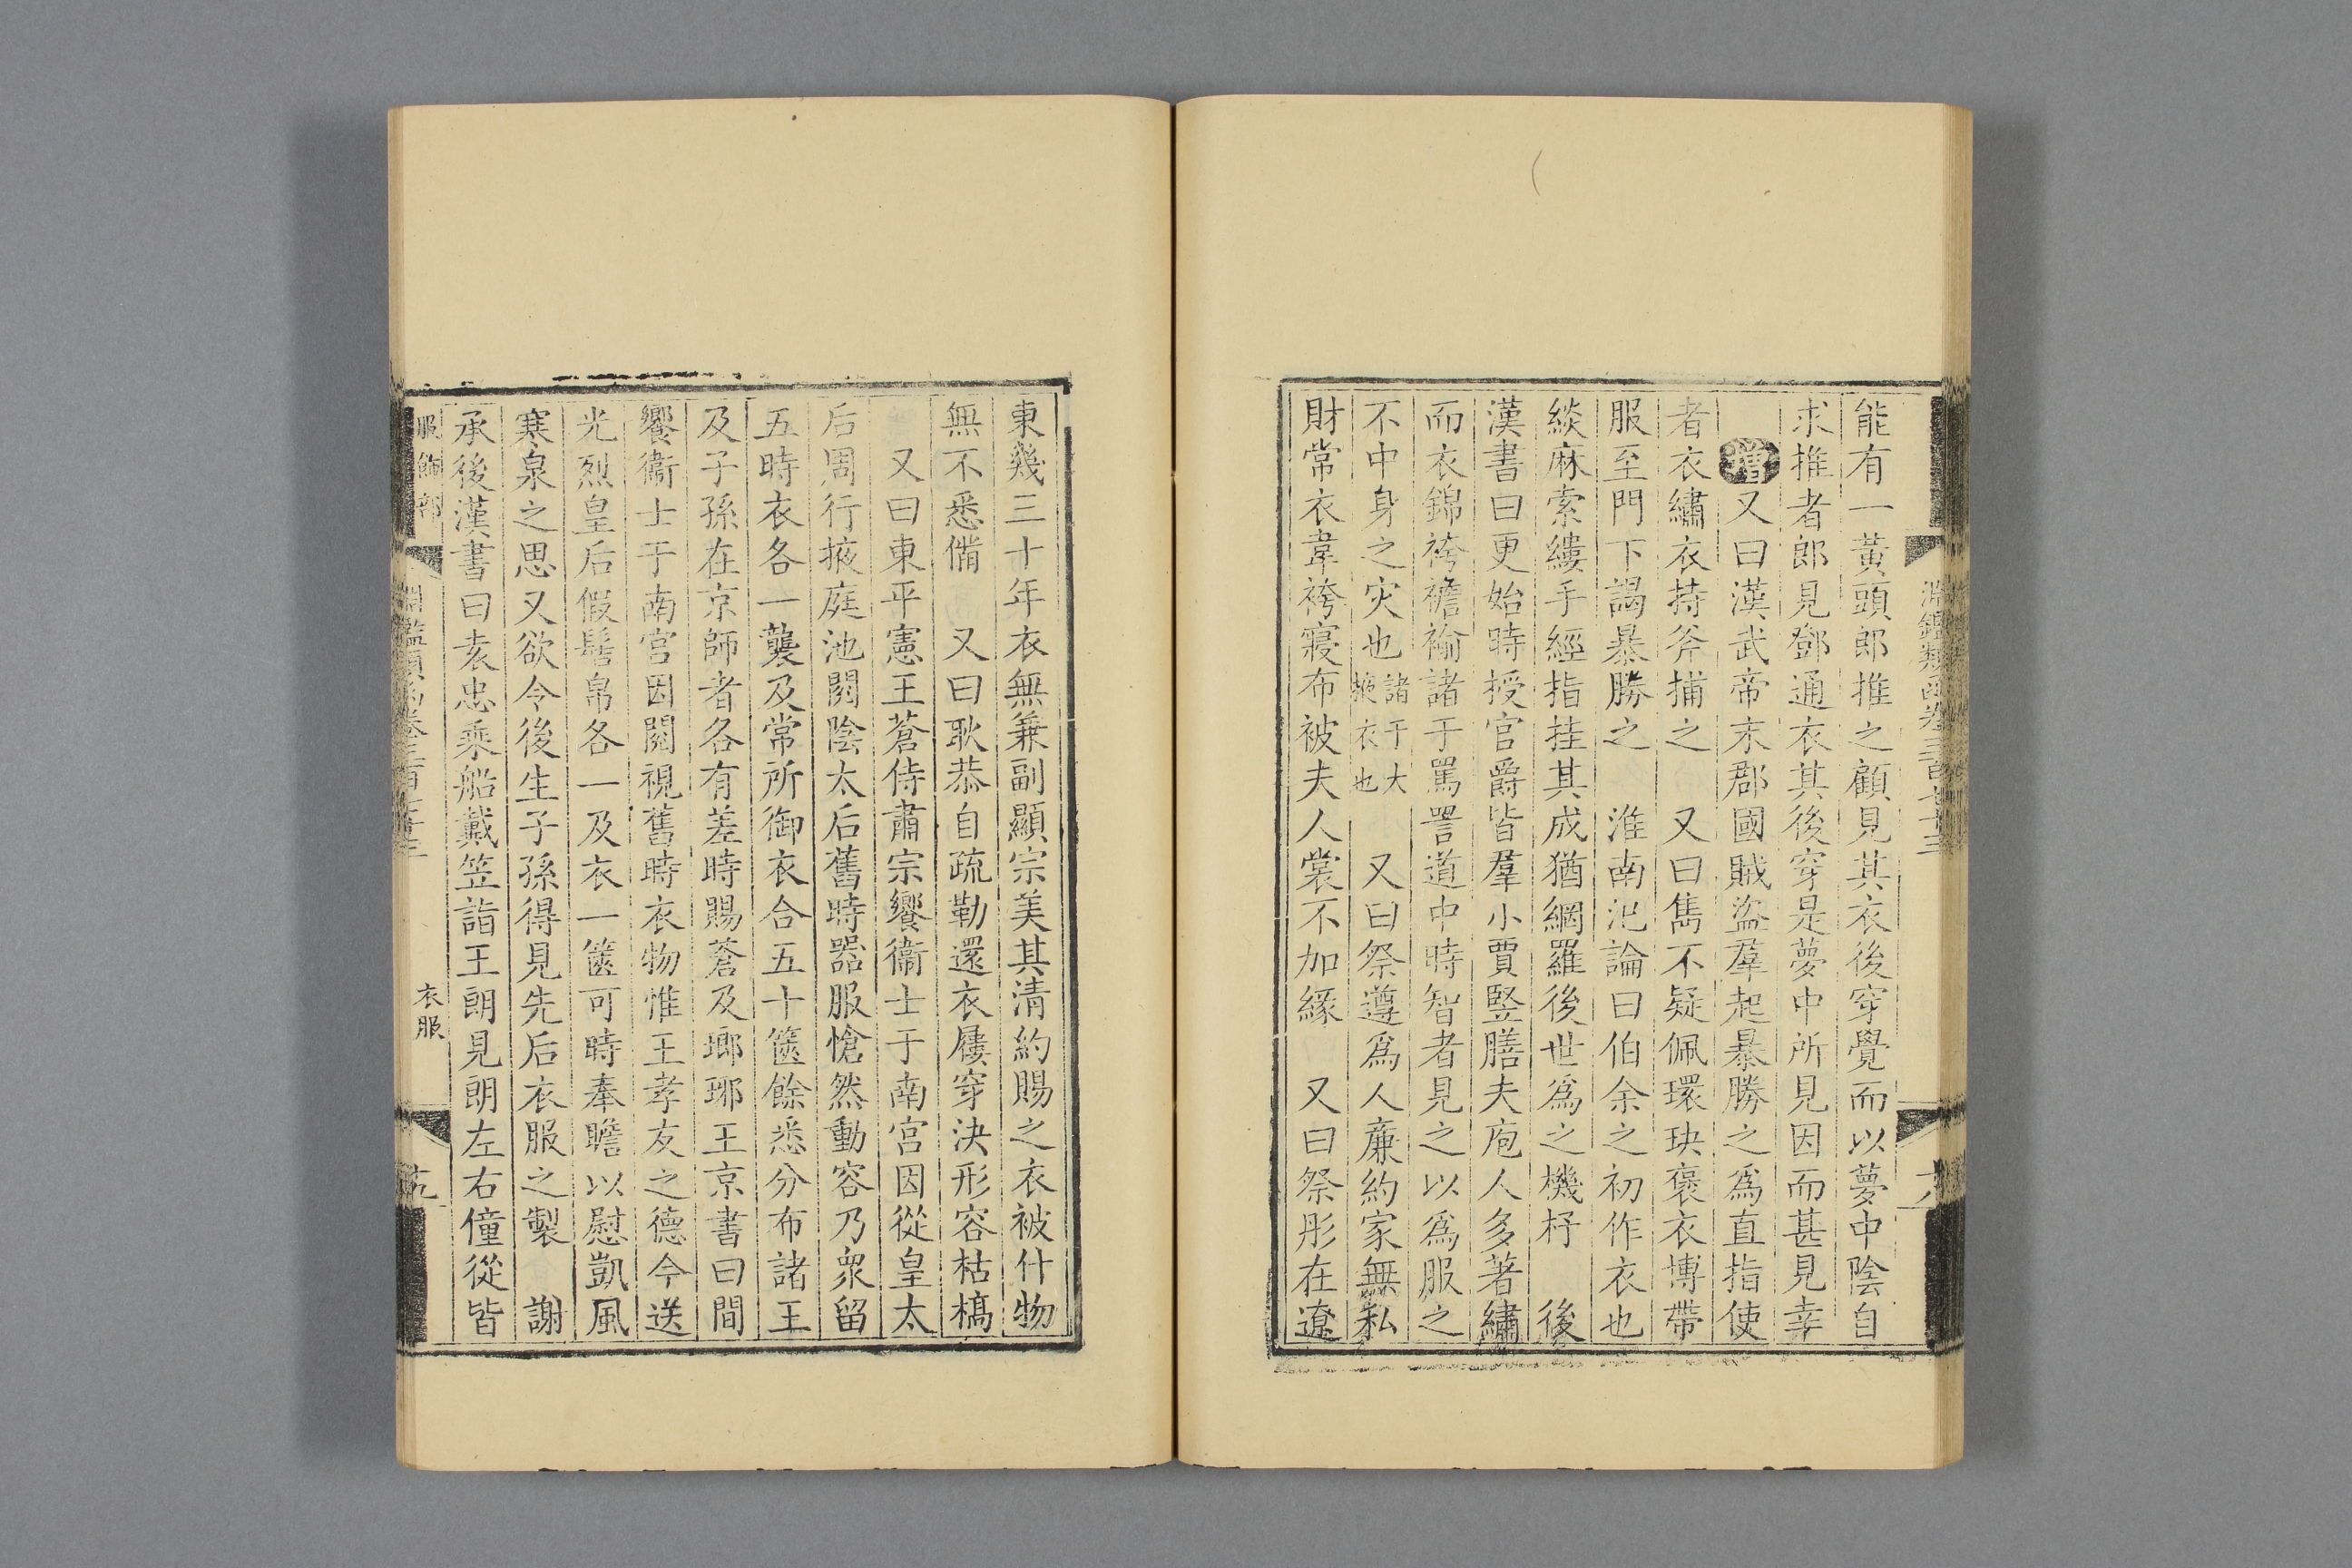 能有一黃頭郎推之顧見其衣後穿覺而以夢中陰自
求推者郎見鄧通衣其後穿是夢中所見因而甚見幸
增又曰漢武帝末郡國賊盜羣起暴勝之爲直指使
者衣繡衣持斧捕之　又曰雋不疑佩環玦褒衣博帶
服至門下謁暴勝之　淮南氾論曰伯余之初作衣也
緂麻索縷手經指挂其成猶網羅後世爲之機杼　後
漢書曰更始時授官爵皆羣小賈竪膳夫庖人多著繡
而衣錦袴襜褕諸于罵詈道中時智者見之以爲服之
不中身之灾也諸于大掖衣也　又曰祭遵爲人廉約家無私
財常衣韋袴寢布被夫人裳不加緣　又曰祭肜在遼
東幾三十年衣無兼副顯宗美其清約賜之衣被什物
無不悉備　又曰耿恭自疏勒還衣屨穿決形容枯槁
又曰東平憲王蒼侍肅宗饗衞士于南宮因從皇太
后周行掖庭池閣陰太后舊時器服愴然動容乃衆留
五時衣各一襲及常所御衣合五十篋餘悉分布諸王
及子孫在京師者各有差時賜蒼及瑯琊王京書曰間
饗衞士于南宮因閱視舊時衣物惟王孝友之德今送
光烈皇后假髻帛各一及衣一篋可時奉瞻以慰凱風
寒泉之思又欲令後生子孫得見先后衣服之製　謝
承後漢書曰袁忠乘船戴笠詣王朗見朗左右僮從皆
服飾部
淵鑑類函卷三百七十三
衣服